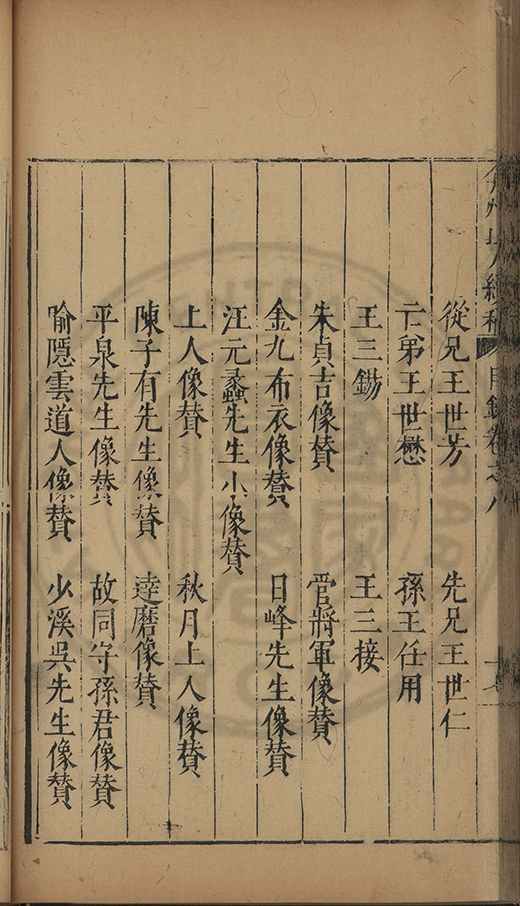 弇州山人續稿 目錄卷之八
從兄王世芳 先兄王世仁
亡弟王世懋 孫王任用
王三錫 王三接
朱貞吉像賛 管將軍像賛
金九布衣像賛 日峰先生像賛
汪元蠡先生小像賛
上人像賛 秋月上人像賛
陳子有先生像賛 逹磨像賛
平泉先生像賛 故同守孫君像賛
喻隱雲道人像賛 少溪吳先生像賛